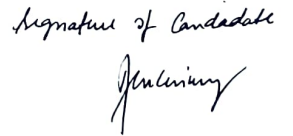 Signature of Candadate